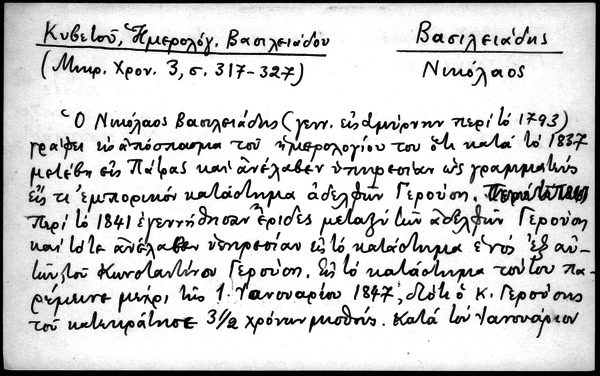 Κυβετοῦ, Ἡμερολόγ. Βασιλειάδου
(Μικρ. Χρον. 3, σ. 317-327)
Βασιλειάδης
Νικόλαος
Ὁ Νικόλαος Βασιλειάδης (γενν. εἰς Σμύρνην περί τό 1793)
γράφει εἰς ἀπόσπασμα τοῦ ἡμερολογίου του ὅτι κατά τό 1837
μετέβη εἰς Πάτρας καί ἀνέλαβεν ὑπηρεσίαν ὡς γραμματεύς
εἰς τι ἐμπορικόν κατάστημα ἀδελφῶν Γερούση.
Περί τό 1841 ἐγεννήθησαν ἔριδες μεταξύ τῶν ἀδελφῶν Γερούση
καί τότε ἀνέλαβεν ὑπηρεσίαν εἰς τό κατάστημα ἑνός ἐξ αὐ-
τῶν, τοῦ Κωνσταντίνου Γερούση. Εἰς τό κατάστημα τούτου πα-
ρέμεινε μέχρι τῆς 1 Ἰανουαρίου 1847, διότι ὁ Κ. Γερούσης
τοῦ κατεκράτησε 3 1/2 χρόνων μισθούς. Κατά τόν Ἰανουάριον